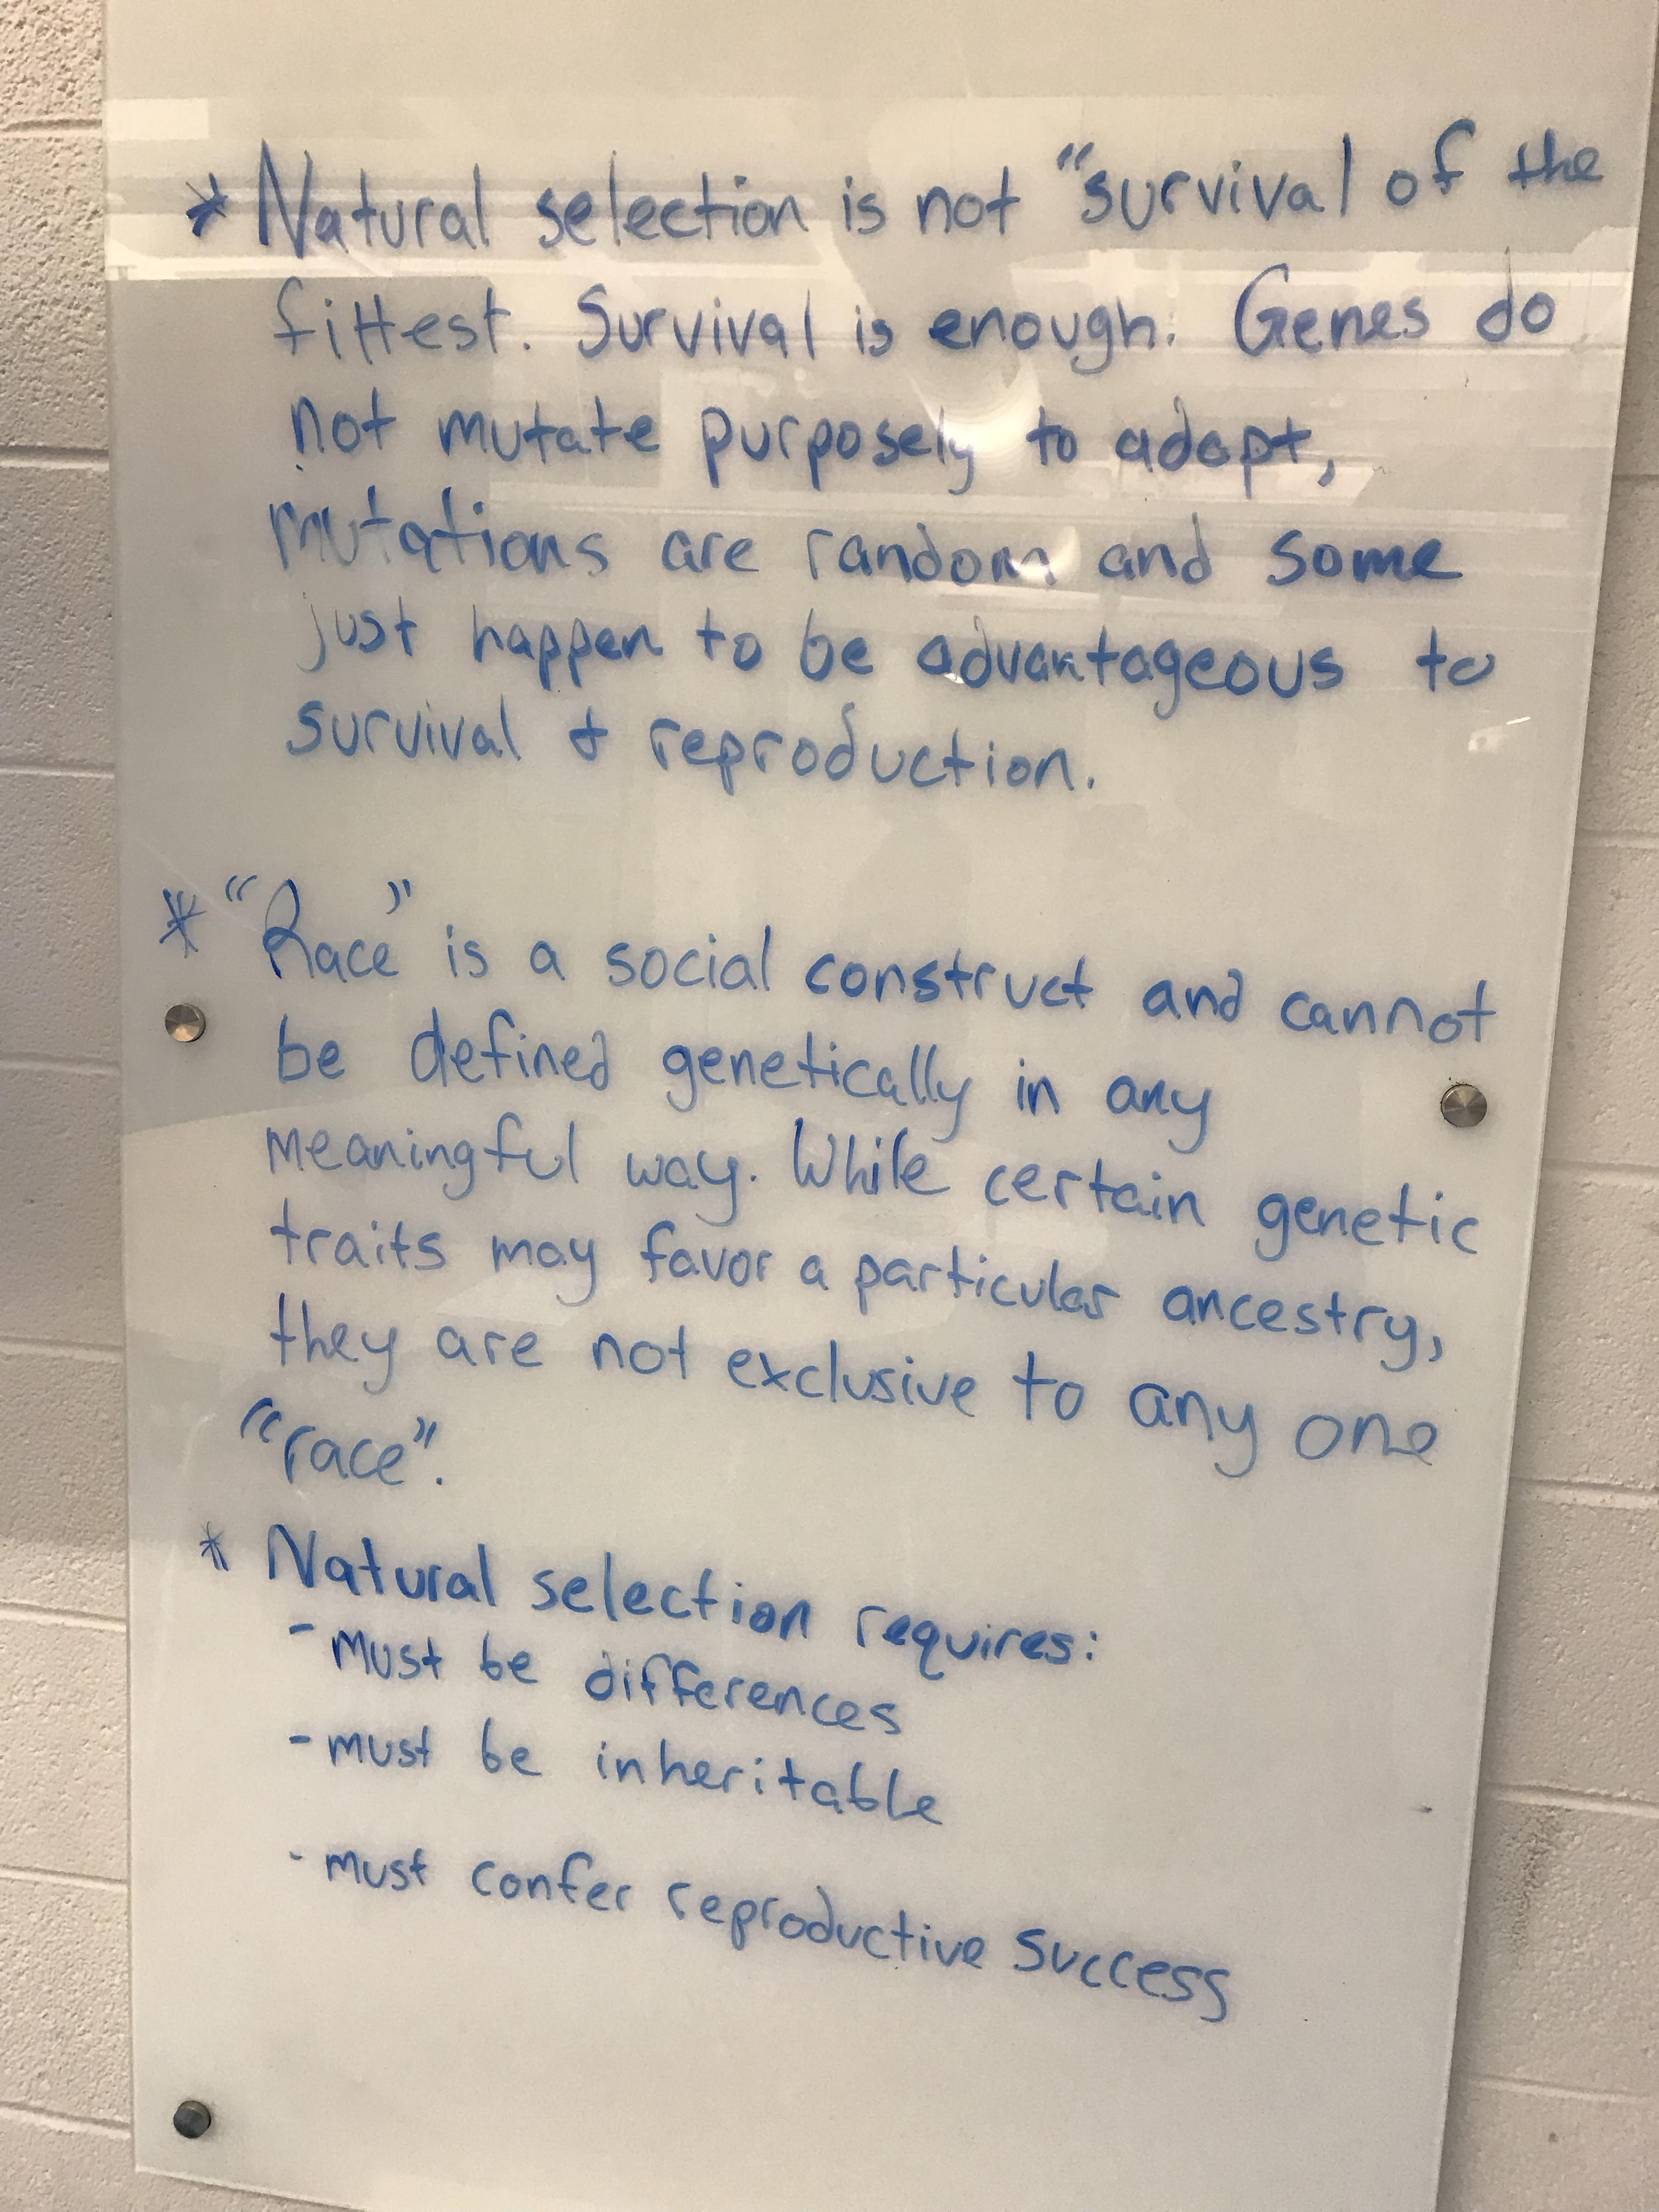 * Natural selection is not "survival of the
fittest. Survival is enough. Genes do
not mutate purposely to adapt,
mutations are random and some
just happen to be advantageous to
survival & reproduction.
* "Race" is a social construct and cannot
be defined genetically in any
meaningful way. While certain genetic
traits may favor a particular ancestry,
they are not exclusive to any one
"race".
* Natural selection requires:
- must be differences
- must be inheritable
- must confer reproductive success